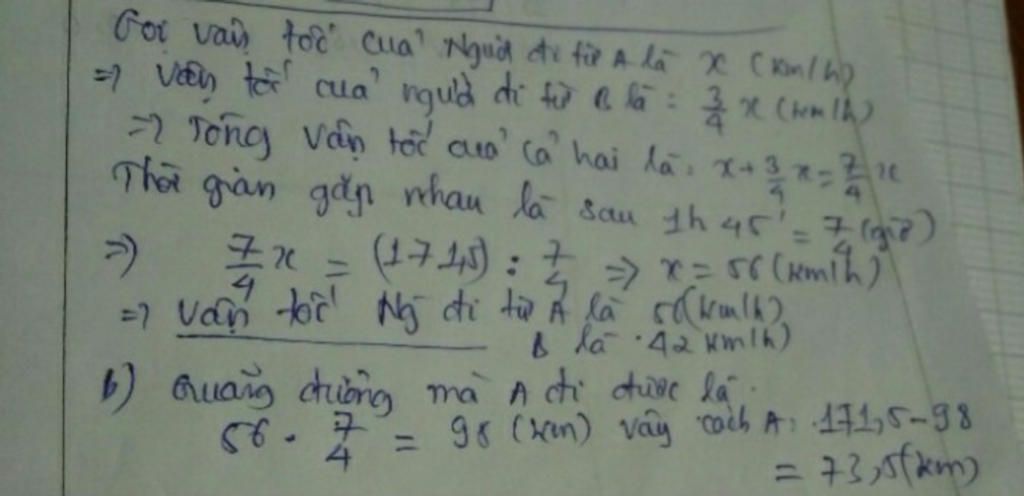 Gọi vận tốc của Người đi từ A là x (km/h)
=> Vận tốc của người đi từ B là : 3/4 x (km/h)
=> Tổng vận tốc của cả hai là: x + 3/4 x = 7/4 x
Thời gian gặp nhau là sau 1h 45' = 7/4 (giờ)
=> 7/4 x = (171,5) : 7/4 => x = 56 (km/h)
=> Vận tốc Ng đi từ A là 56 (km/h)
B là . 42 km/h)
b) Quãng đường mà A đi được là .
56 . 7/4 = 98 (km) vậy cách A : 171,5 - 98
= 73,5 (km)